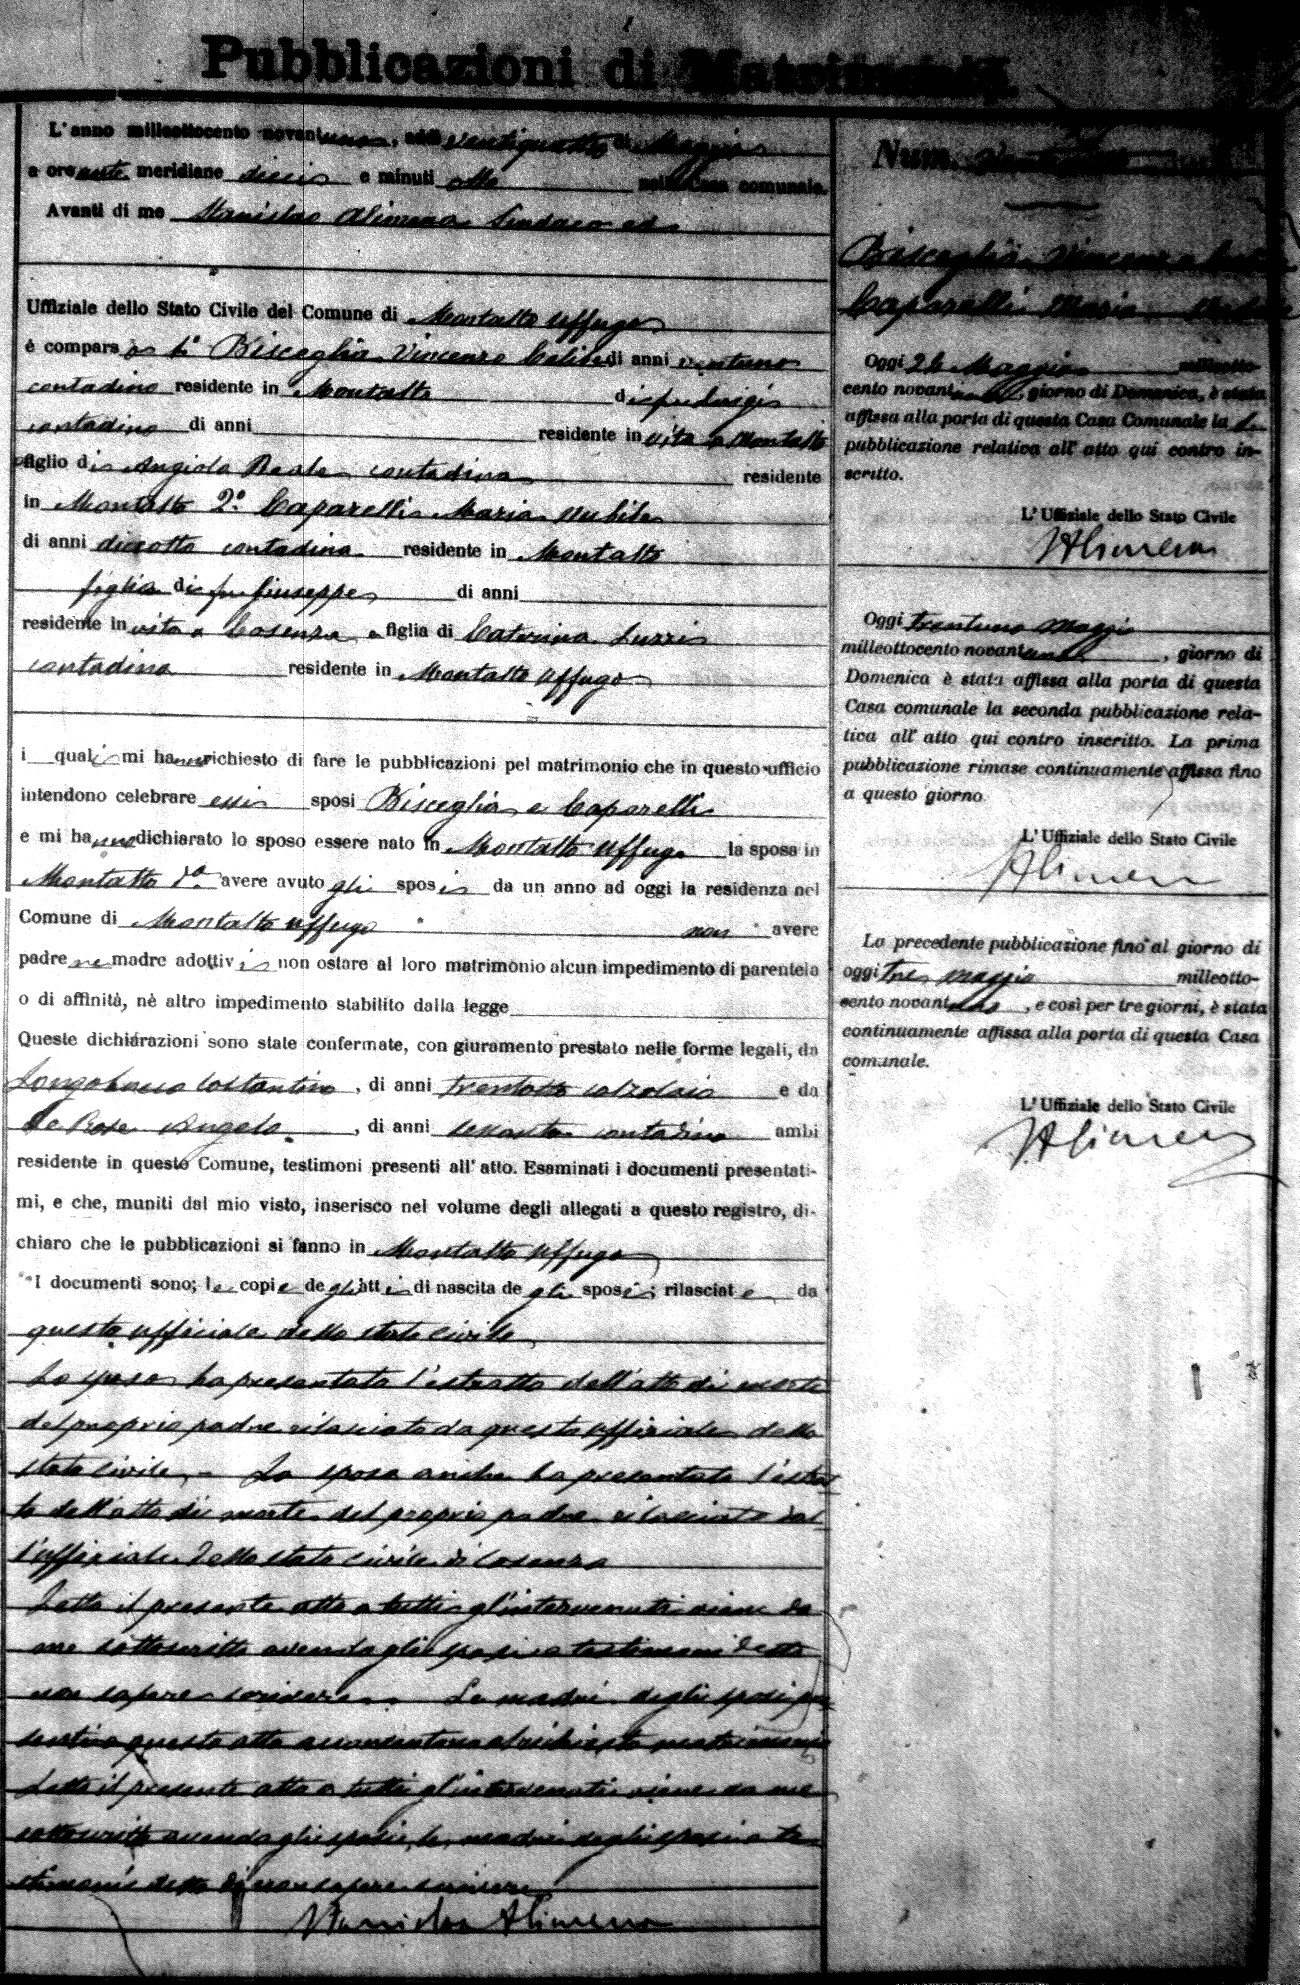 Pubblicazioni di Matrimonio
L'anno milleottocento novantuno, addì ventiquattro di Maggio
a ore ante meridiane dieci e minuti otto nella Casa comunale.
Avanti di me Stanislao Alimena Sindaco ed
Uffiziale dello Stato Civile del Comune di Montalto Uffugo
è compars 1° Bisceglia Vincenzo Celibe di anni ventuno
contadino residente in Montalto di fu Luigi
contadino di anni residente in vita a Montalto
figlio di Angiola Reale contadina residente
in Montalto 2° Caparelli Maria nubile
di anni diciotto contadina residente in Montalto
figlia di fu Giuseppe di anni
residente in vita a Cosenza e figlia di Caterina Luzzi
contadina residente in Montalto Uffugo
i quali mi hanno richiesto di fare le pubblicazioni pel matrimonio che in questo ufficio
intendono celebrare essi sposi Bisceglia e Caparelli
e mi hanno dichiarato lo sposo essere nato in Montalto Uffugo la sposa in
Montalto avere avuto gli sposi da un anno ad oggi la residenza nel
Comune di Montalto Uffugo non avere
padre ne madre adottivi non ostare al loro matrimonio alcun impedimento di parentela
o di affinità, nè altro impedimento stabilito dalla legge
Queste dichiarazioni sono state confermate, con giuramento prestato nelle forme legali, da
Longobucco Costantino, di anni trentotto calzolaio e da
De Rose Angelo, di anni sessanta contadino ambi
residente in questo Comune, testimoni presenti all'atto. Esaminati i documenti presentati-
mi, e che, muniti dal mio visto, inserisco nel volume degli allegati a questo registro, di-
chiaro che le pubblicazioni si fanno in Montalto Uffugo
I documenti sono; le copie degli atti di nascita de gli sposi; rilasciate da
questo ufficiale dello stato civile
Lo sposo ha presentato l'estratto dell'atto di morte
del proprio padre rilasciato da questo uffiziale dello
stato civile. - La sposa anche ha presentato l'estrat
to dell'atto di morte del proprio padre rilasciato dal
l'uffiziale dello stato civile di Cosenza
Letto il presente atto a tutti gl'intervenuti viene da
me sottoscritto avendo gli sposi e testimoni detto
non sapere scrivere. Le madri degli sposi pre
senti a questo atto acconsentono al richiesto matrimonio
Letto il presente atto a tutti gl'intervenuti viene da me
sottoscritto avendo gli sposi, le madri degli sposi e te
stimonii detto di non sapere scrivere
Stanislao Alimena
Num.
Bisceglia Vincenzo
Caparelli Maria
Oggi 24 Maggio milleotto-
cento novantuno, giorno di Domenica, è stata
affissa alla porta di questa Casa Comunale la
pubblicazione relativa all'atto qui contro in-
scritto.
L'Uffiziale dello Stato Civile
SAlimena
Oggi trentuno maggio
milleottocento novantuno, giorno di
Domenica è stata affissa alla porta di questa
Casa comunale la seconda pubblicazione rela-
tiva all'atto qui contro inscritto. La prima
pubblicazione rimase continuamente affissa fino
a questo giorno
L'Uffiziale dello Stato Civile
SAlimena
La precedente pubblicazione fino al giorno di
oggi tre maggio milleotto-
cento novantuno, e così per tre giorni, è stata
continuamente affissa alla porta di questa Casa
comunale.
L'Uffiziale dello Stato Civile
SAlimena